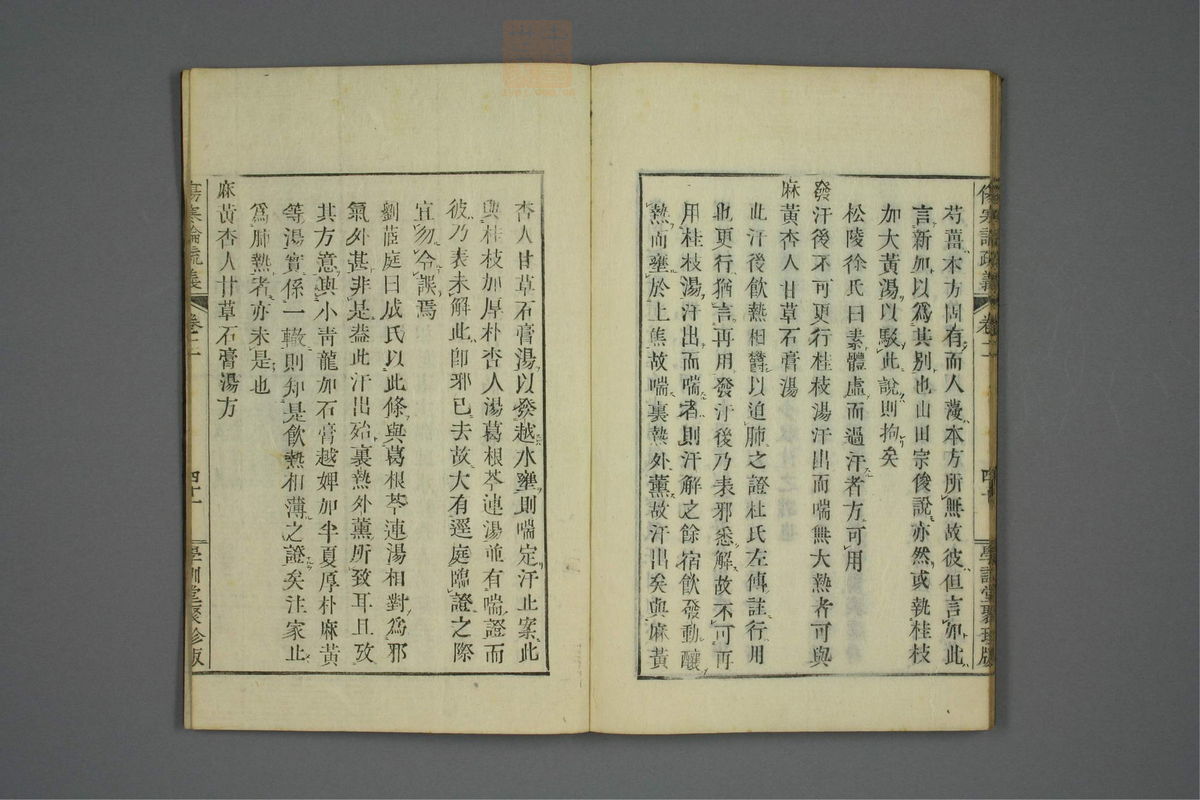 芍薑本方固有而人薓本方所無故彼但言如此
言新加以爲其別也山田宗俊說亦然或執桂枝
加大黃湯以駁此說則拘矣
松陵徐氏曰素體虛而過汗者方可用
發汗後不可更行桂枝湯汗出而喘無大熱者可與
麻黃杏人甘草石膏湯
此汗後飲熱相欝以迫肺之證杜氏左傳註行用
也更行猶言再用發汗後乃表邪悉解故不可再
用桂枝湯汗出而喘者則汗解之餘宿飲發動釀
熱而壅於上焦故喘裏熱外薰故汗出矣與麻黃
傷寒論疏義
卷二
四十
學訓堂聚珍版
杏人甘草石膏湯以發越水壅則喘定汗止案此
與桂枝加厚朴杏人湯葛根芩連湯並有喘證而
彼乃表未解此卽邪已去故大有逕庭臨證之際
宜勿令誤焉
劉茝庭曰成氏以此條與葛根芩連湯相對爲邪
氣外甚非是葢此汗出殆裏熱外薰所致耳且攷
其方意與小靑龍加石膏越婢加半夏厚朴麻黃
等湯實係一轍則知是飲熱相薄之證矣注家止
爲肺熱者亦未是也
麻黃杏人甘草石膏湯方
傷寒論疏義
卷二
四十一
學訓堂聚珍版